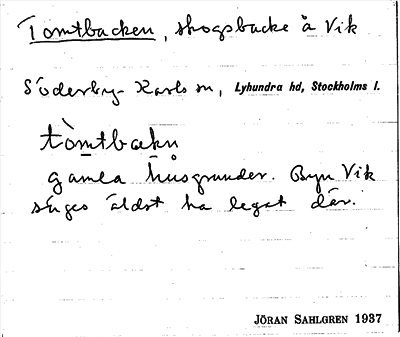 Tomtbacken, skogsbacke å Vik
Söderby-Karls sn, Lyhundra hd, Stockholms l.
tòmtbakn
gamla husgrunder. Byn Vik
säges äldst ha legat där.
JÖRAN SAHLGREN 1937